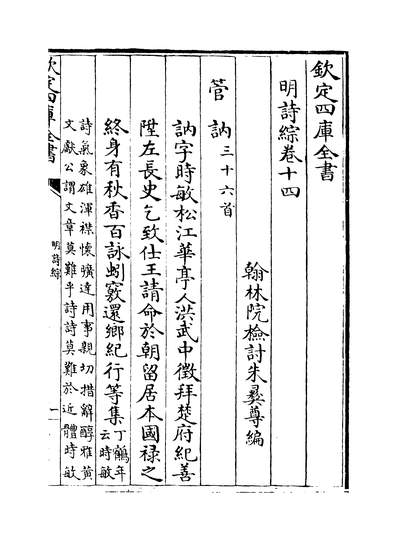 欽定四庫全書
明詩綜卷十四
翰林院檢討朱彝尊編
管訥三十六首
訥字時敏松江華亭人洪武中徵拜楚府紀善
陞左長史乞致仕王請命於朝留居本國祿之
終身有秋香百詠蚓竅還鄉紀行等集丁鶴年云時敏
詩氣象雄渾襟懷曠達用事親切措辭醇雅黄
文獻公謂文章莫難乎詩詩莫難於近體時敏
欽定四庫全書
明詩綜
一